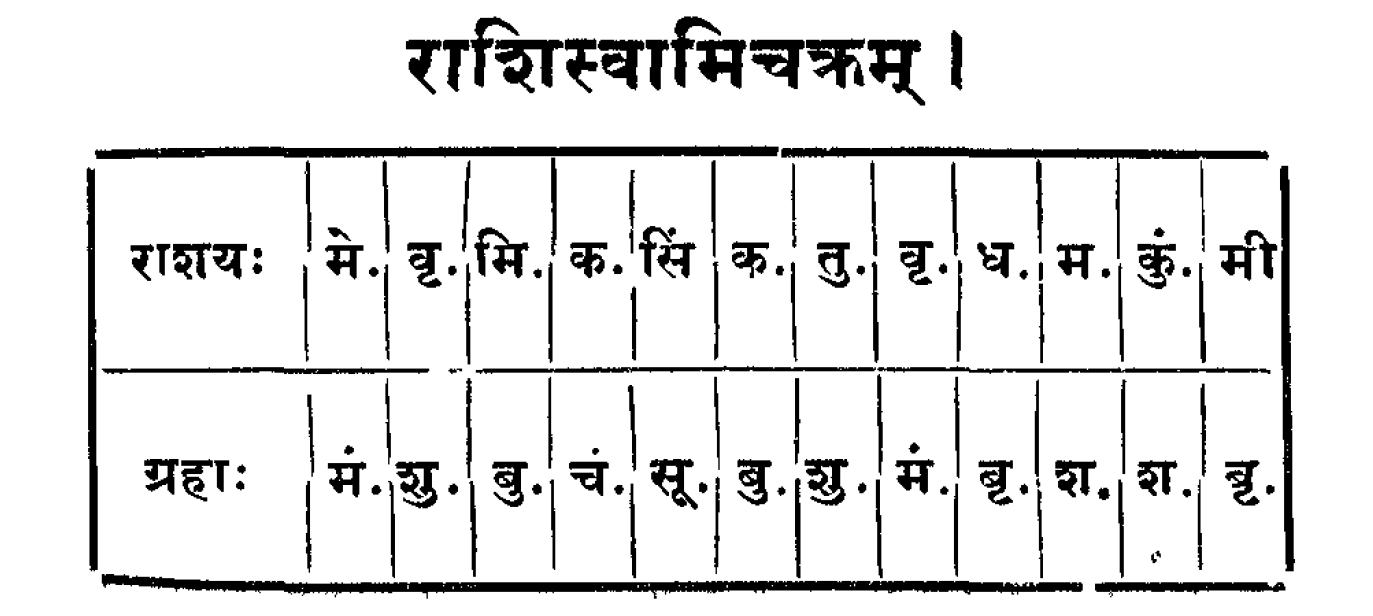 राशिस्वामिचक्रम् ।
राशयः मे. वृ. मि. क. सिं क. तु. वृ. ध. म. कुं. मी
ग्रहाः मं. शु. बु. चं. सू. बु. शु. मं. बृ. श. श. बृ.